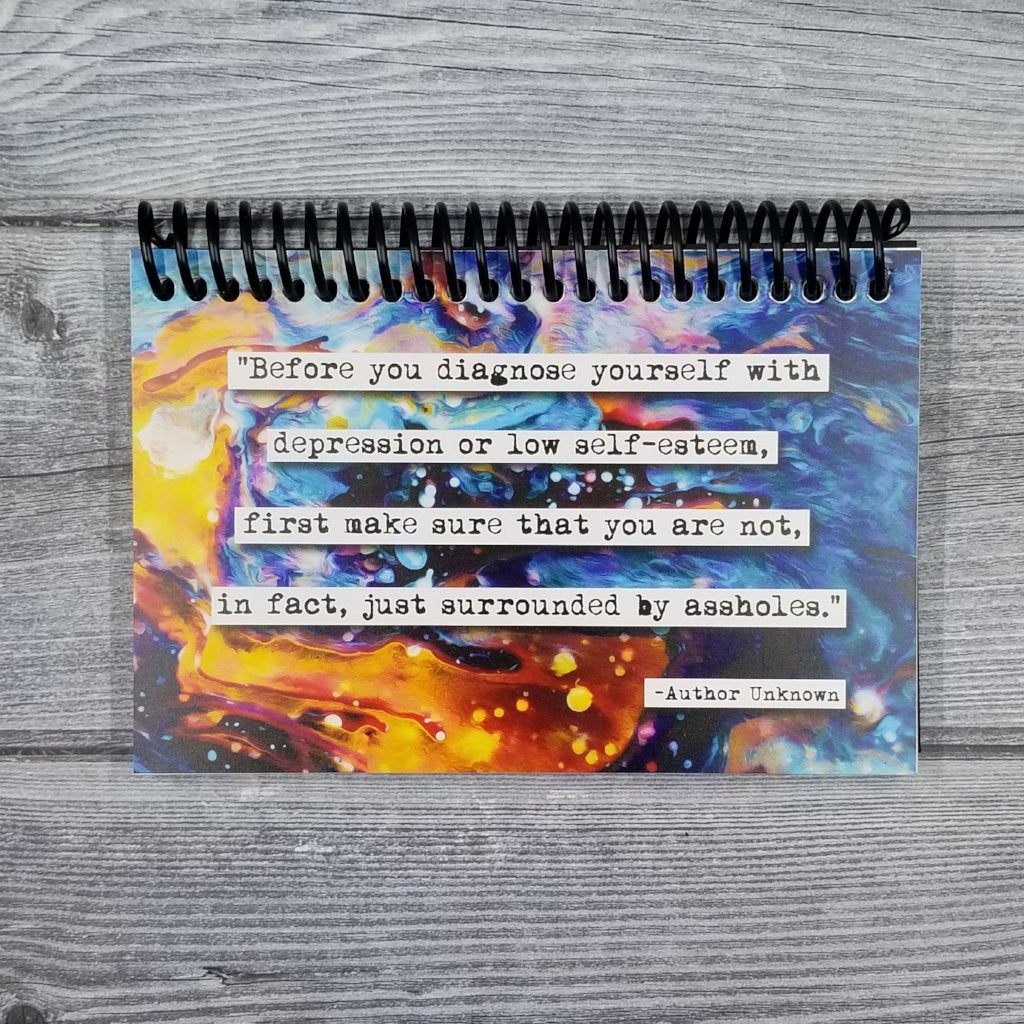 "Before you diagnose yourself with
depression or low self-esteem,
first make sure that you are not,
in fact, just surrounded by assholes."
-Author Unknown